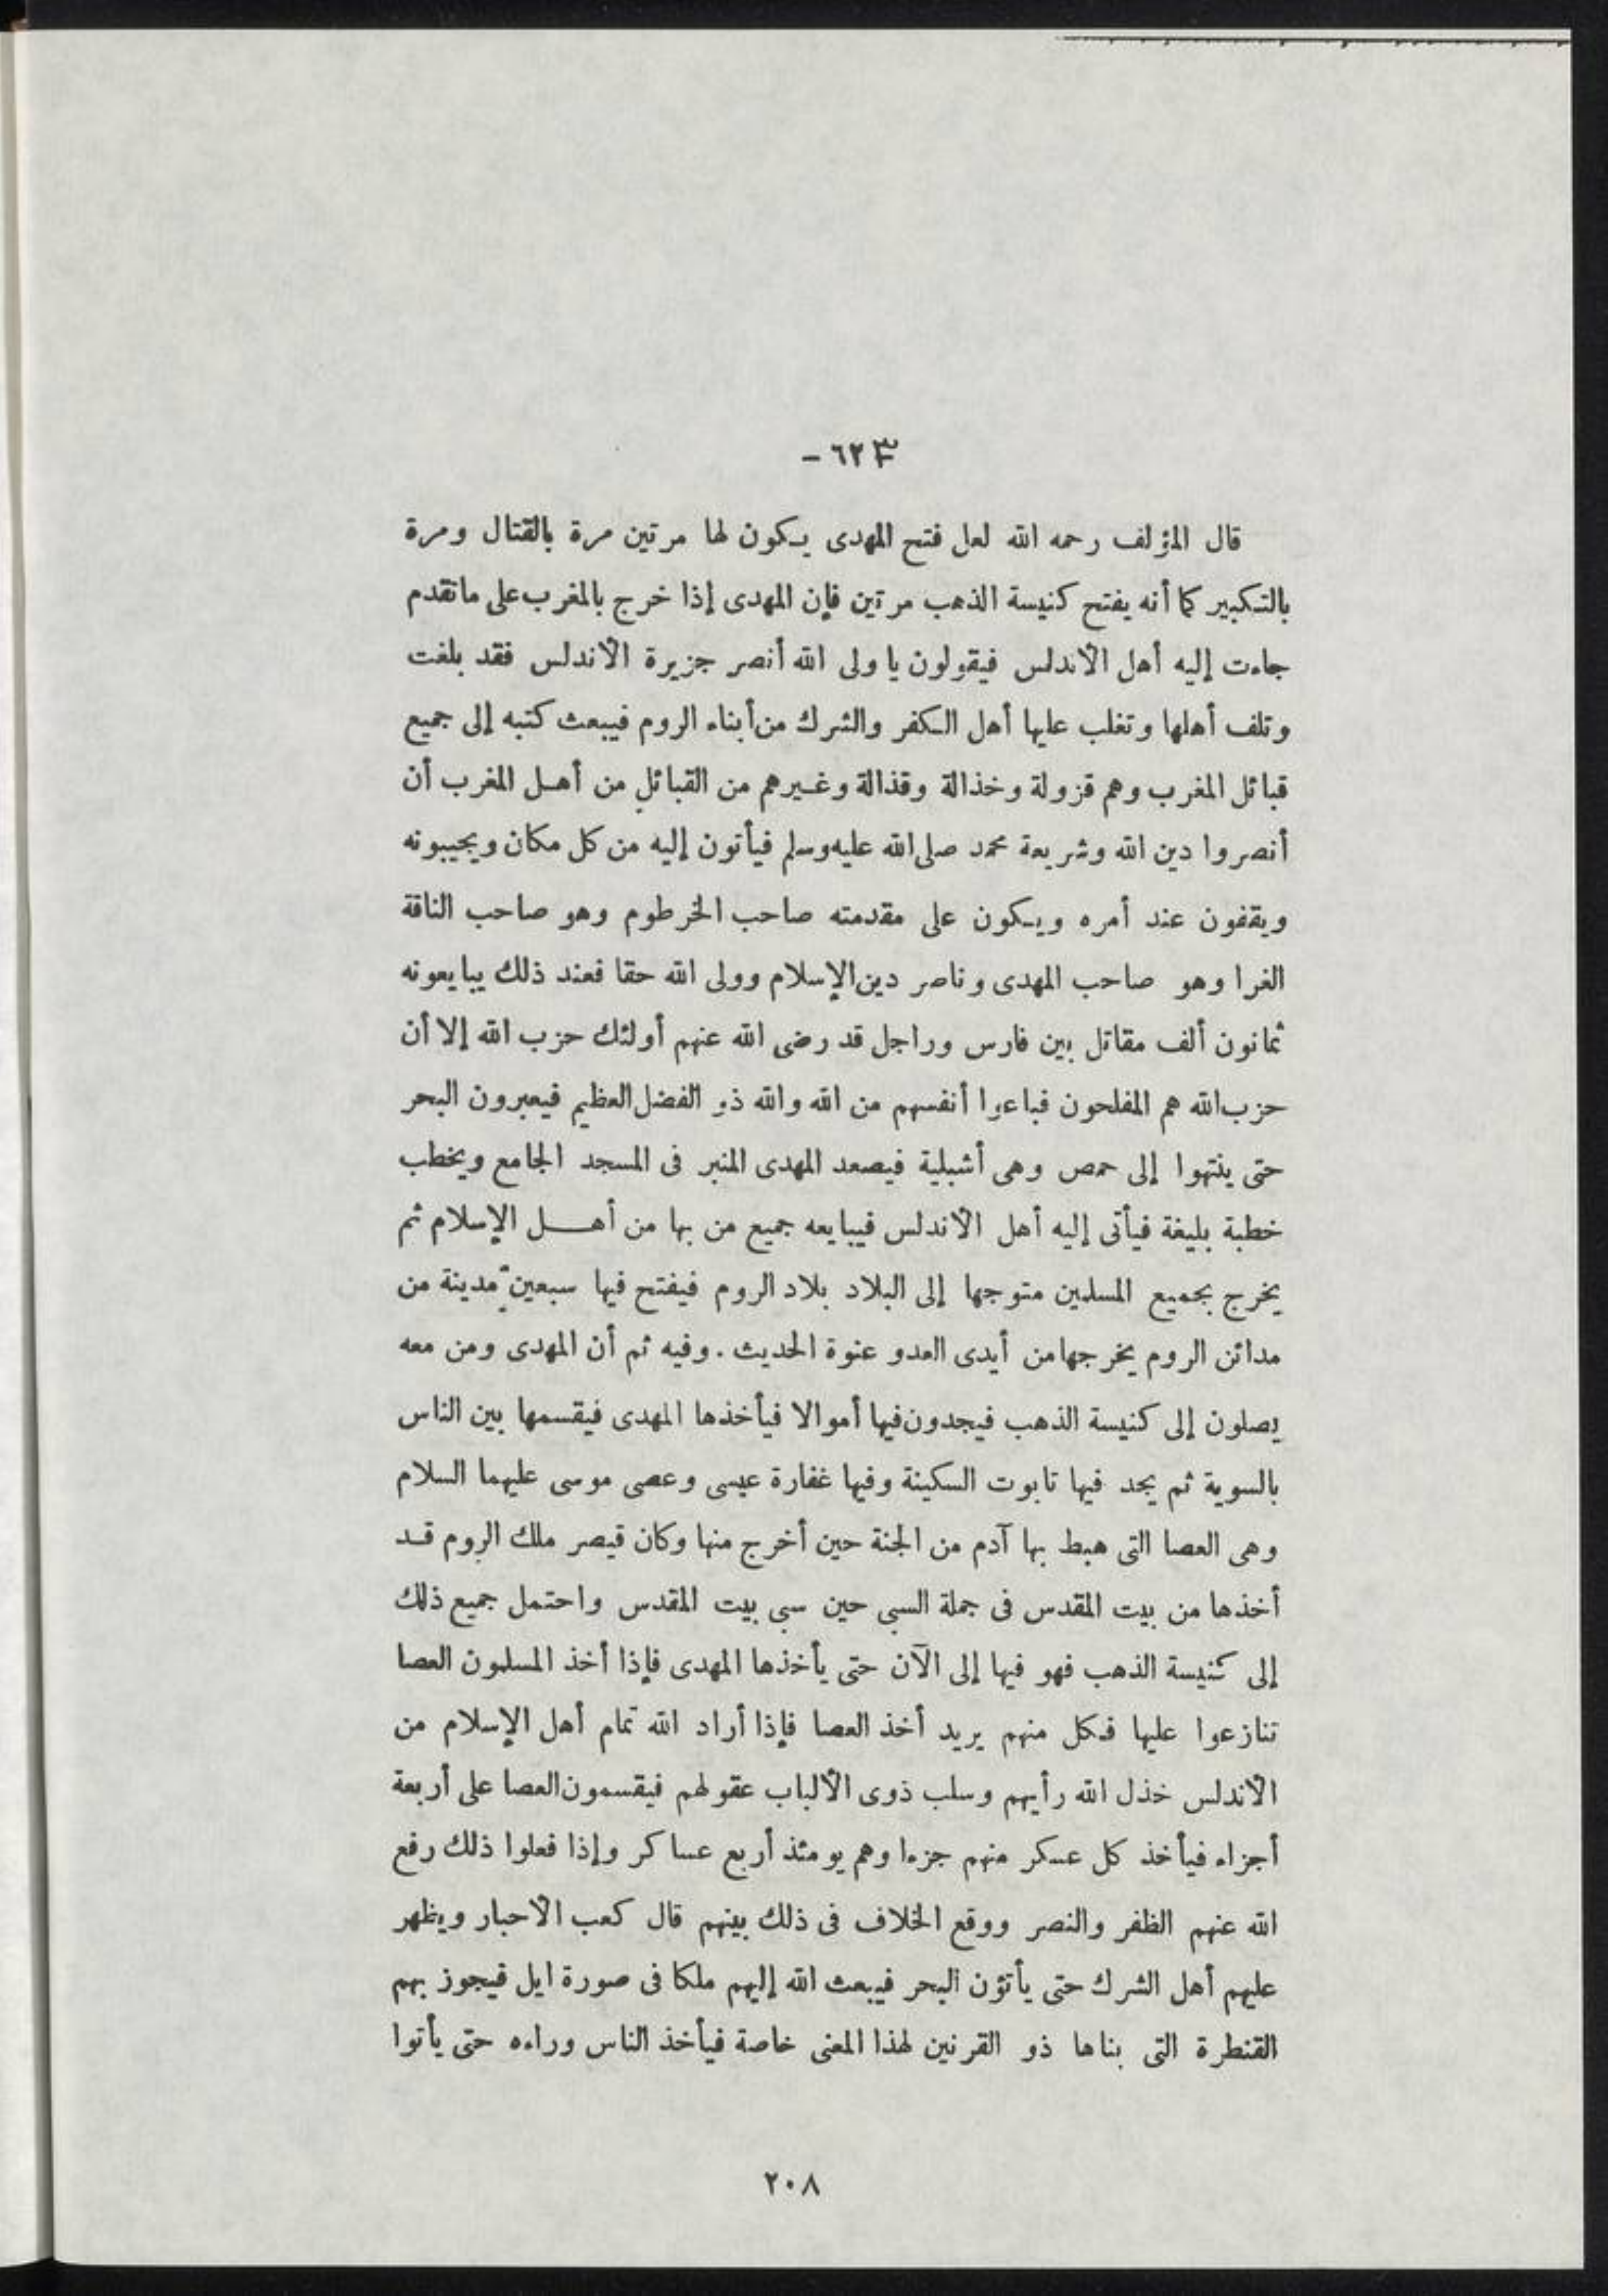 ٦٢٣ -
قال المؤلف رحمه الله لعل فتح المهدى يكون لها مرتين مرة بالقتال ومرة
بالتكبير كما أنه يفتح كنيسة الذهب مرتين فإن المهدى إذا خرج بالمغرب على ماتقدم
جاءت إليه أهل الأندلس فيقولون يا ولى الله أنصر جزيرة الأندلس فقد بلغت
وتلف أهلها وتغلب عليها أهل الكفر والشرك من أبناء الروم فيبعث كتبه إلى جميع
قبائل المغرب وهم قزولة وخذالة وقذالة وغيرهم من القبائل من أهل المغرب أن
أنصروا دين الله وشريعة محمد صلى الله عليه وسلم فيأتون إليه من كل مكان ويجيبونه
ويقفون عند أمره ويكون على مقدمته صاحب الخرطوم وهو صاحب الناقة
الغرا وهو صاحب المهدى وناصر دين الإسلام وولى الله حقا فعند ذلك يبايعونه
ثمانون ألف مقاتل بين فارس وراجل قد رضى الله عنهم أولئك حزب الله إلا أن
حزب الله هم المفلحون فباعوا أنفسهم من الله والله ذو الفضل العظيم فيعبرون البحر
حتى ينتهوا إلى حمص وهى أشبلية فيصعد المهدى المنبر فى المسجد الجامع ويخطب
خطبة بليغة فيأتى إليه أهل الأندلس فيبايعه جميع من بها من أهل الإسلام ثم
يخرج بجميع المسلمين متوجها إلى البلاد بلاد الروم فيفتح فيها سبعين مدينة من
مدائن الروم يخرجها من أيدى العدو عنوة الحديث . وفيه ثم أن المهدى ومن معه
يصلون إلى كنيسة الذهب فيجدون فيها أموالا فيأخذها المهدى فيقسمها بين الناس
بالسوية ثم يجد فيها تابوت السكينة وفيها غفارة عيسى وعصى موسى عليهما السلام
وهى العصا التى هبط بها آدم من الجنة حين أخرج منها وكان قيصر ملك الروم قد
أخذها من بيت المقدس فى جملة السبى حين سبى بيت المقدس واحتمل جميع ذلك
إلى كنيسة الذهب فهو فيها إلى الآن حتى يأخذها المهدى فإذا أخذ المسلمون العصا
تنازعوا عليها فكل منهم يريد أخذ العصا فإذا أراد الله تمام أهل الإسلام من
الأندلس خذل الله رأيهم وسلب ذوى الألباب عقولهم فيقسمون العصا على أربعة
أجزاء فيأخذ كل عسكر منهم جزءا وهم يومئذ أربع عساكر وإذا فعلوا ذلك رفع
الله عنهم الظفر والنصر ووقع الخلاف فى ذلك بينهم قال كعب الأحبار ويظهر
عليهم أهل الشرك حتى يأتون البحر فيبعث الله إليهم ملكا فى صورة ايل فيجوز بهم
القنطرة التى بناها ذو القرنين لهذا المعنى خاصة فيأخذ الناس وراءه حتى يأتوا
٢٠٨